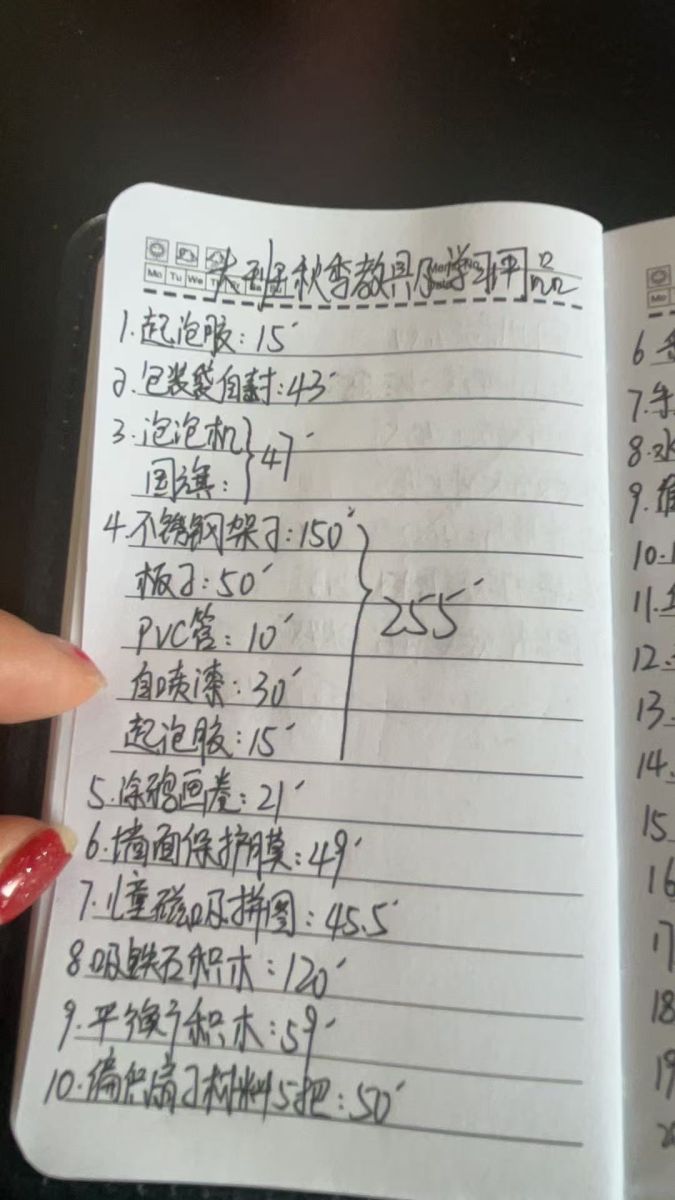 Mo Tu We
大班秋季教具及学习用品
1.起泡胶:15
2.包装袋自封:43
3.泡泡机
国旗:
47
4.不锈钢架子:150
板子:50
PVC管:10
自喷漆:30
起泡胶:15
255
5.涂鸦画卷:21
6.墙面保护膜:49
7.儿童磁吸拼图:45.5
8.吸铁石积木:120
9.平衡积木:59
10.编织扇子材料5把:50
6
7.
8.水
9.
10.
11.
12.
13
14.
15
16
17
18
19